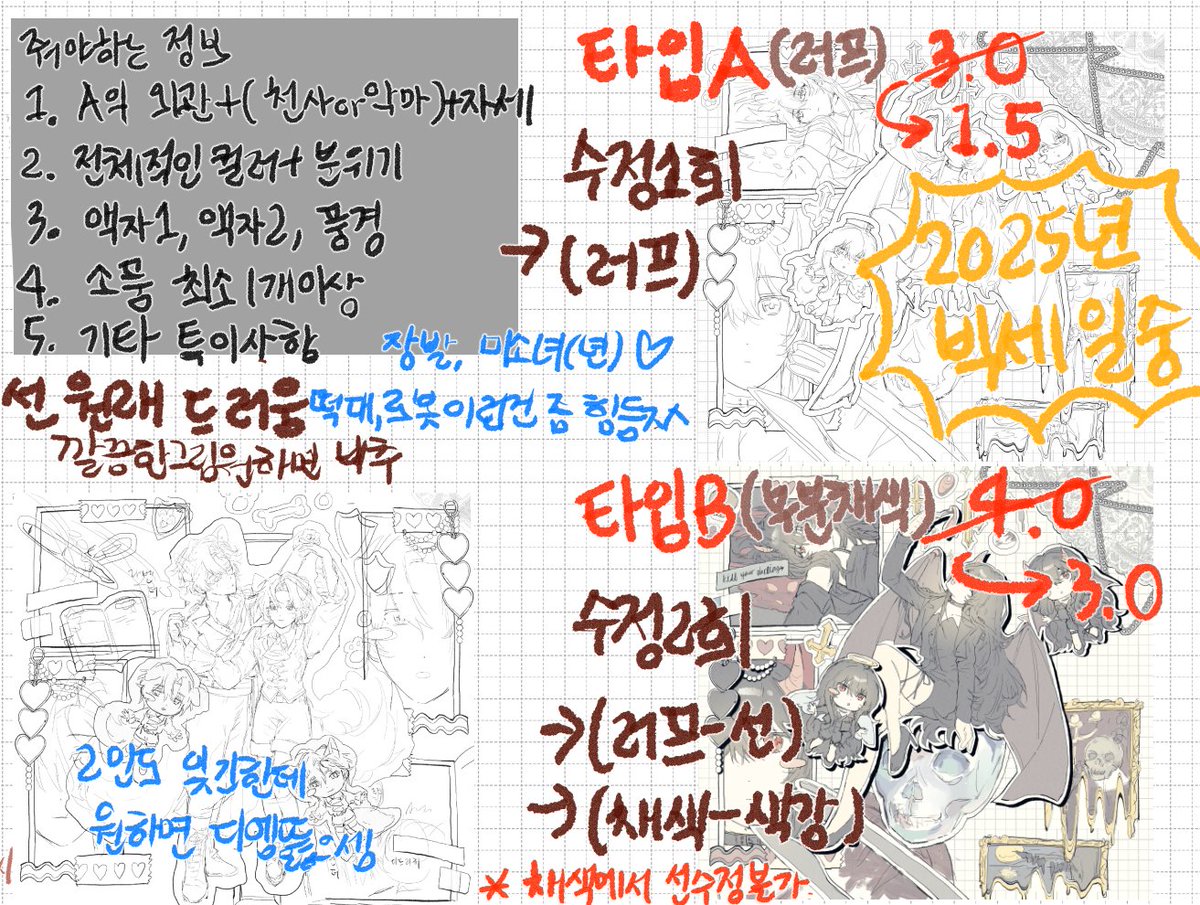 줘야하는 정보
1. A의 외관+(천사or악마)+자세
2. 전체적인 컬러+분위기
3. 액자1, 액자2, 풍경
4. 소품 최소1개이상
5. 기타 특이사항
장발, 미소녀(년)♡
선 원래 드러움
떡대,로봇이런건 좀 힘듦ㅈㅅ
깔끔한그림원하면 비추
타입A(러프)
3.0
1.5
수정1회
→(러프)
2025년
빅세일중
타입B(부분채색)
4.0
3.0
수정2회
→(러프-선)
→(채색-색감)
* 채색에서 선수정불가
2인도 있긴한데
원하면 디엠뚫으셈
kill your darlings